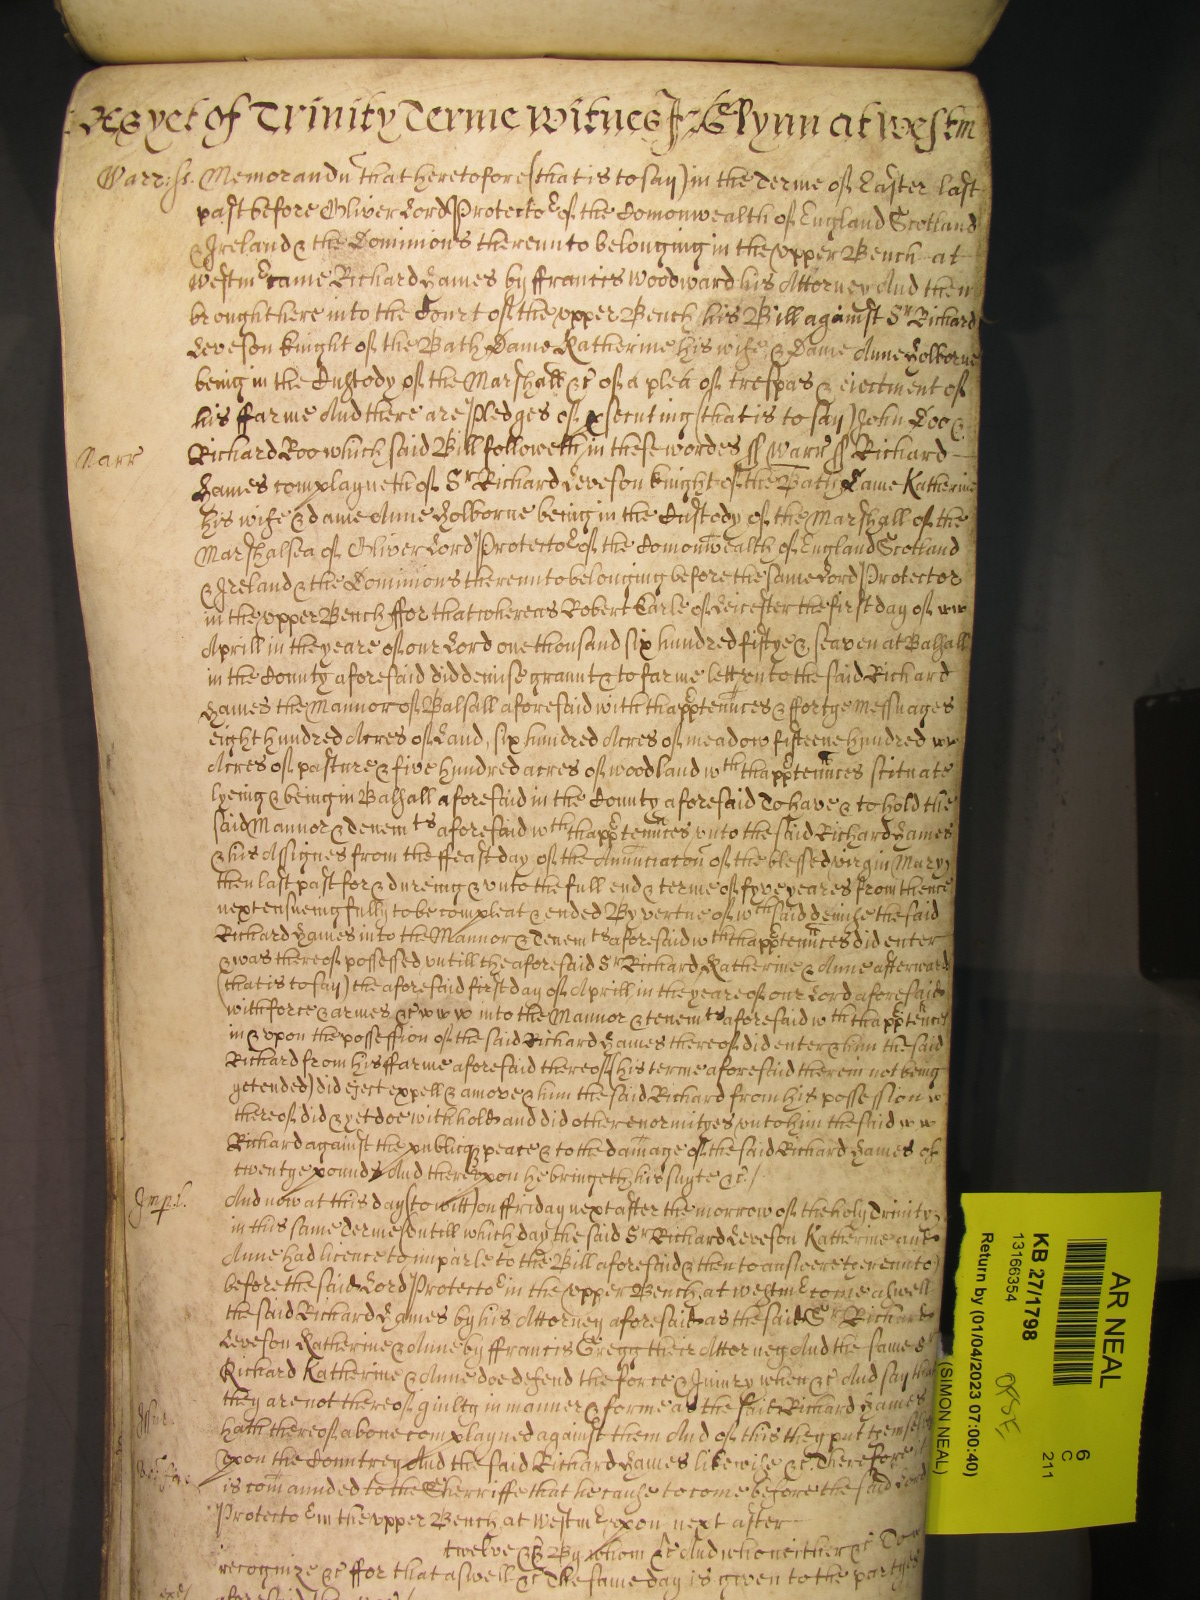 As yet of Trinity Terme Witnes Jo: Glynn at Westm
Warr: ss. Memorandu that heretofore (that is to say) in the Terme of Easter last
past before Oliver Lord Protector of the Comonwealth of England Scotland
& Ireland & the Dominions thereunto belonging in the upper Bench at
Westmr came Richard Eames by ffrancis Woodward his Attorney And then
brought here into the Court of the upper Bench his Bill against Sr Richard
Leveson knight of the Bath Dame Katherine his wife & Dame Anne Holborne
being in the Custody of the Marshall &c of a plea of trespas & eiectment of
his ffarme And there are Pledges of psecuting (that is to say) John Doo &
Narr
Richard Roo which said Bill followeth in these wordes ss Warr ss Richard
Eames complayneth of Sr Richard Leveson knight of the Bath Dame Katherine
his wife & dame Anne Holborne being in the Custody of the Marshall of the
Marshalsea of Oliver Lord Protector of the Comonwealth of England Scotland
& Ireland & the Dominions thereunto belonging before the same Lord Protector
in the upper Bench ffor that whereas Robert Earle of Leicester the first day of
Aprill in the yeare of our Lord one thousand six hundred fiftye & seaven at Balsall
in the County aforesaid did demise graunt & to farme lett unto the said Richard
Eames the Mannor of Balsall aforesaid with thapptennces & fortye messuages
eight hundred Acres of Land, six hundred Acres of meadow fifteene hundred
Acres of pasture & five hundred acres of woodland wth thapptennces scituate
lyeing & being in Balsall aforesaid in the County aforesaid To have & to hold the
said Mannor & tenemts aforesaid wth thapptennces unto the said Richard Eames
& his Assignes from the ffeast day of the Anunciacon of the blessed virgin Mary
then last past for & dureing & unto the full end & terme of fyve yeares from thence
next ensueing fully to be compleat & ended By vertue of wch said demise the said
Richard Eames into the Mannor & tenemts aforesaid wth thapptennces did enter
& was thereof possessed untill the aforesaid Sr Richard Katherine & Anne afterwards
(that is to say) the aforesaid first day of Aprill in the yeare of our Lord aforesaid
with force & armes &c into the Mannor & tenemts aforesaid wth thapptennces
in & upon the possession of the said Richard Eames thereof did enter & him the said
Richard from his ffarme aforesaid thereof (his terme aforesaid therein not being
yet ended) did eject expell & amove & him the said Richard from his possession
thereof did & yet doe withhold and did other enormityes unto him the said
Richard against the publiq peace & to the damage of the said Richard Eames of
twentye pounds And thereupon he bringeth his suyte &c /
Imp.l.
And now at this day (to witt) on ffriday next after the morrow of the holy Trinity
in this same terme (untill which day the said Sr Richard Leveson Katherine and
Anne had licence to imparle to the Bill aforesaid & then to answere thereunto)
before the said Lord Protector in the upper Bench at Westmr come aswell
the said Richard Eames by his Attorney aforesaid as the said Sr Richard
Leveson Katherine & Anne by ffrancis Gregg their Attorney And the same Sr
Richard Katherine & Anne doe defend the force & Iniury when &c And say that
they are not thereof guilty in manner & forme as the said Richard Eames
hath thereof above complayned against them And of this they put themselves
upon the Countrey And the said Richard Eames likewise &c Therefore it
is comaunded to the Sherriffe that he cause to come before the said Lord
Protector in the upper Bench at Westmr upon next after
twelve &c By whom &c And who neither &c To
recognize &c ffor that aswell &c The same day is given to the partyes
AR NEAL
KB 27/1798
13166354
Return by (01/04/2023 07:00:40)
(SIMON NEAL)
6
C
211